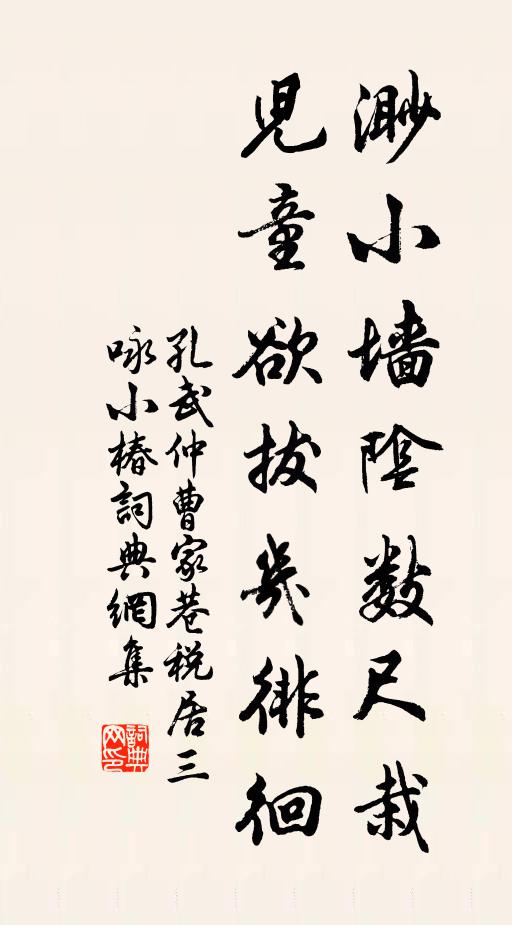 渺小墙陰數尺栽
兒童欲拔幾徘徊
孔武仲曹家巷税居三
咏小椿詞典網集
詞典网印